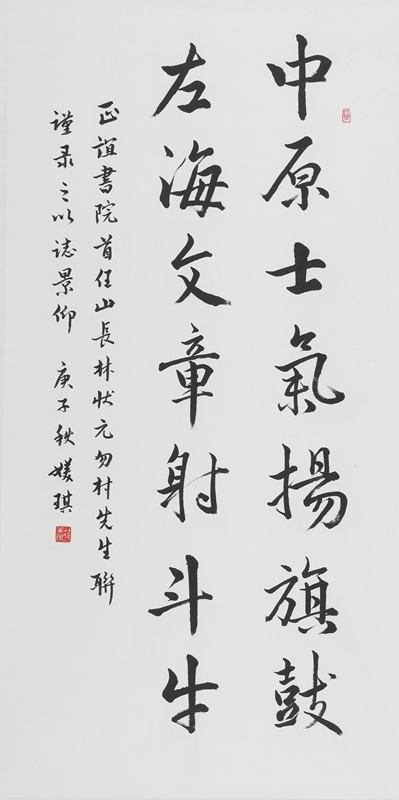 中原士氣揚旗鼓
左海文章射斗牛
正誼書院首任山長林狀元勿村先生聯
謹录之以誌景仰 庚子秋媛琪